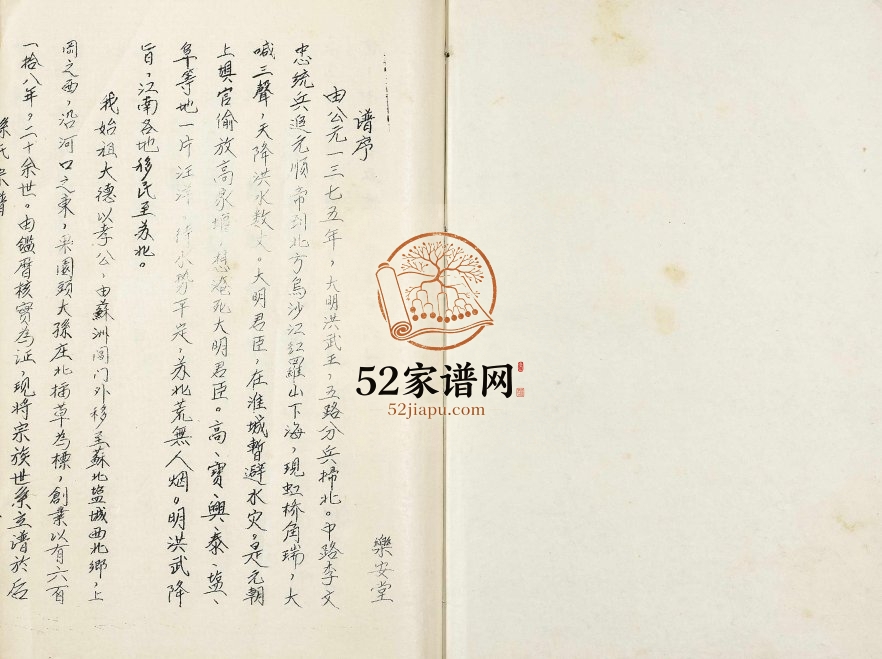 樂安堂
谱序
由公元一三七五年，大明洪武王，五路分兵掃北。中路李文
忠统兵追元顺帝到北方烏沙江紅羅山下海，現虹桥角瑞，大
喊三聲，天降洪水数丈。大明君臣，在淮城暫避水灾，是元朝
上與官偷放高家堰，想淹死大明君臣。高、寶、興、泰、塩、
阜等地一片汪洋，待水势平定，苏北荒無人烟。明洪武降
旨，江南各地移民至苏北。
我始祖大德以孝公，由蘇洲閶门外移至蘇北塩城西北鄉，上
岡之西，沿河口之東，采園頭大孫庄北插草為標，創業以有六百
一拾八年，二十余世。由鑑曆核實為证，現将宗族世系立譜於后
孫氏宗譜
52家谱网
52jiapu.com